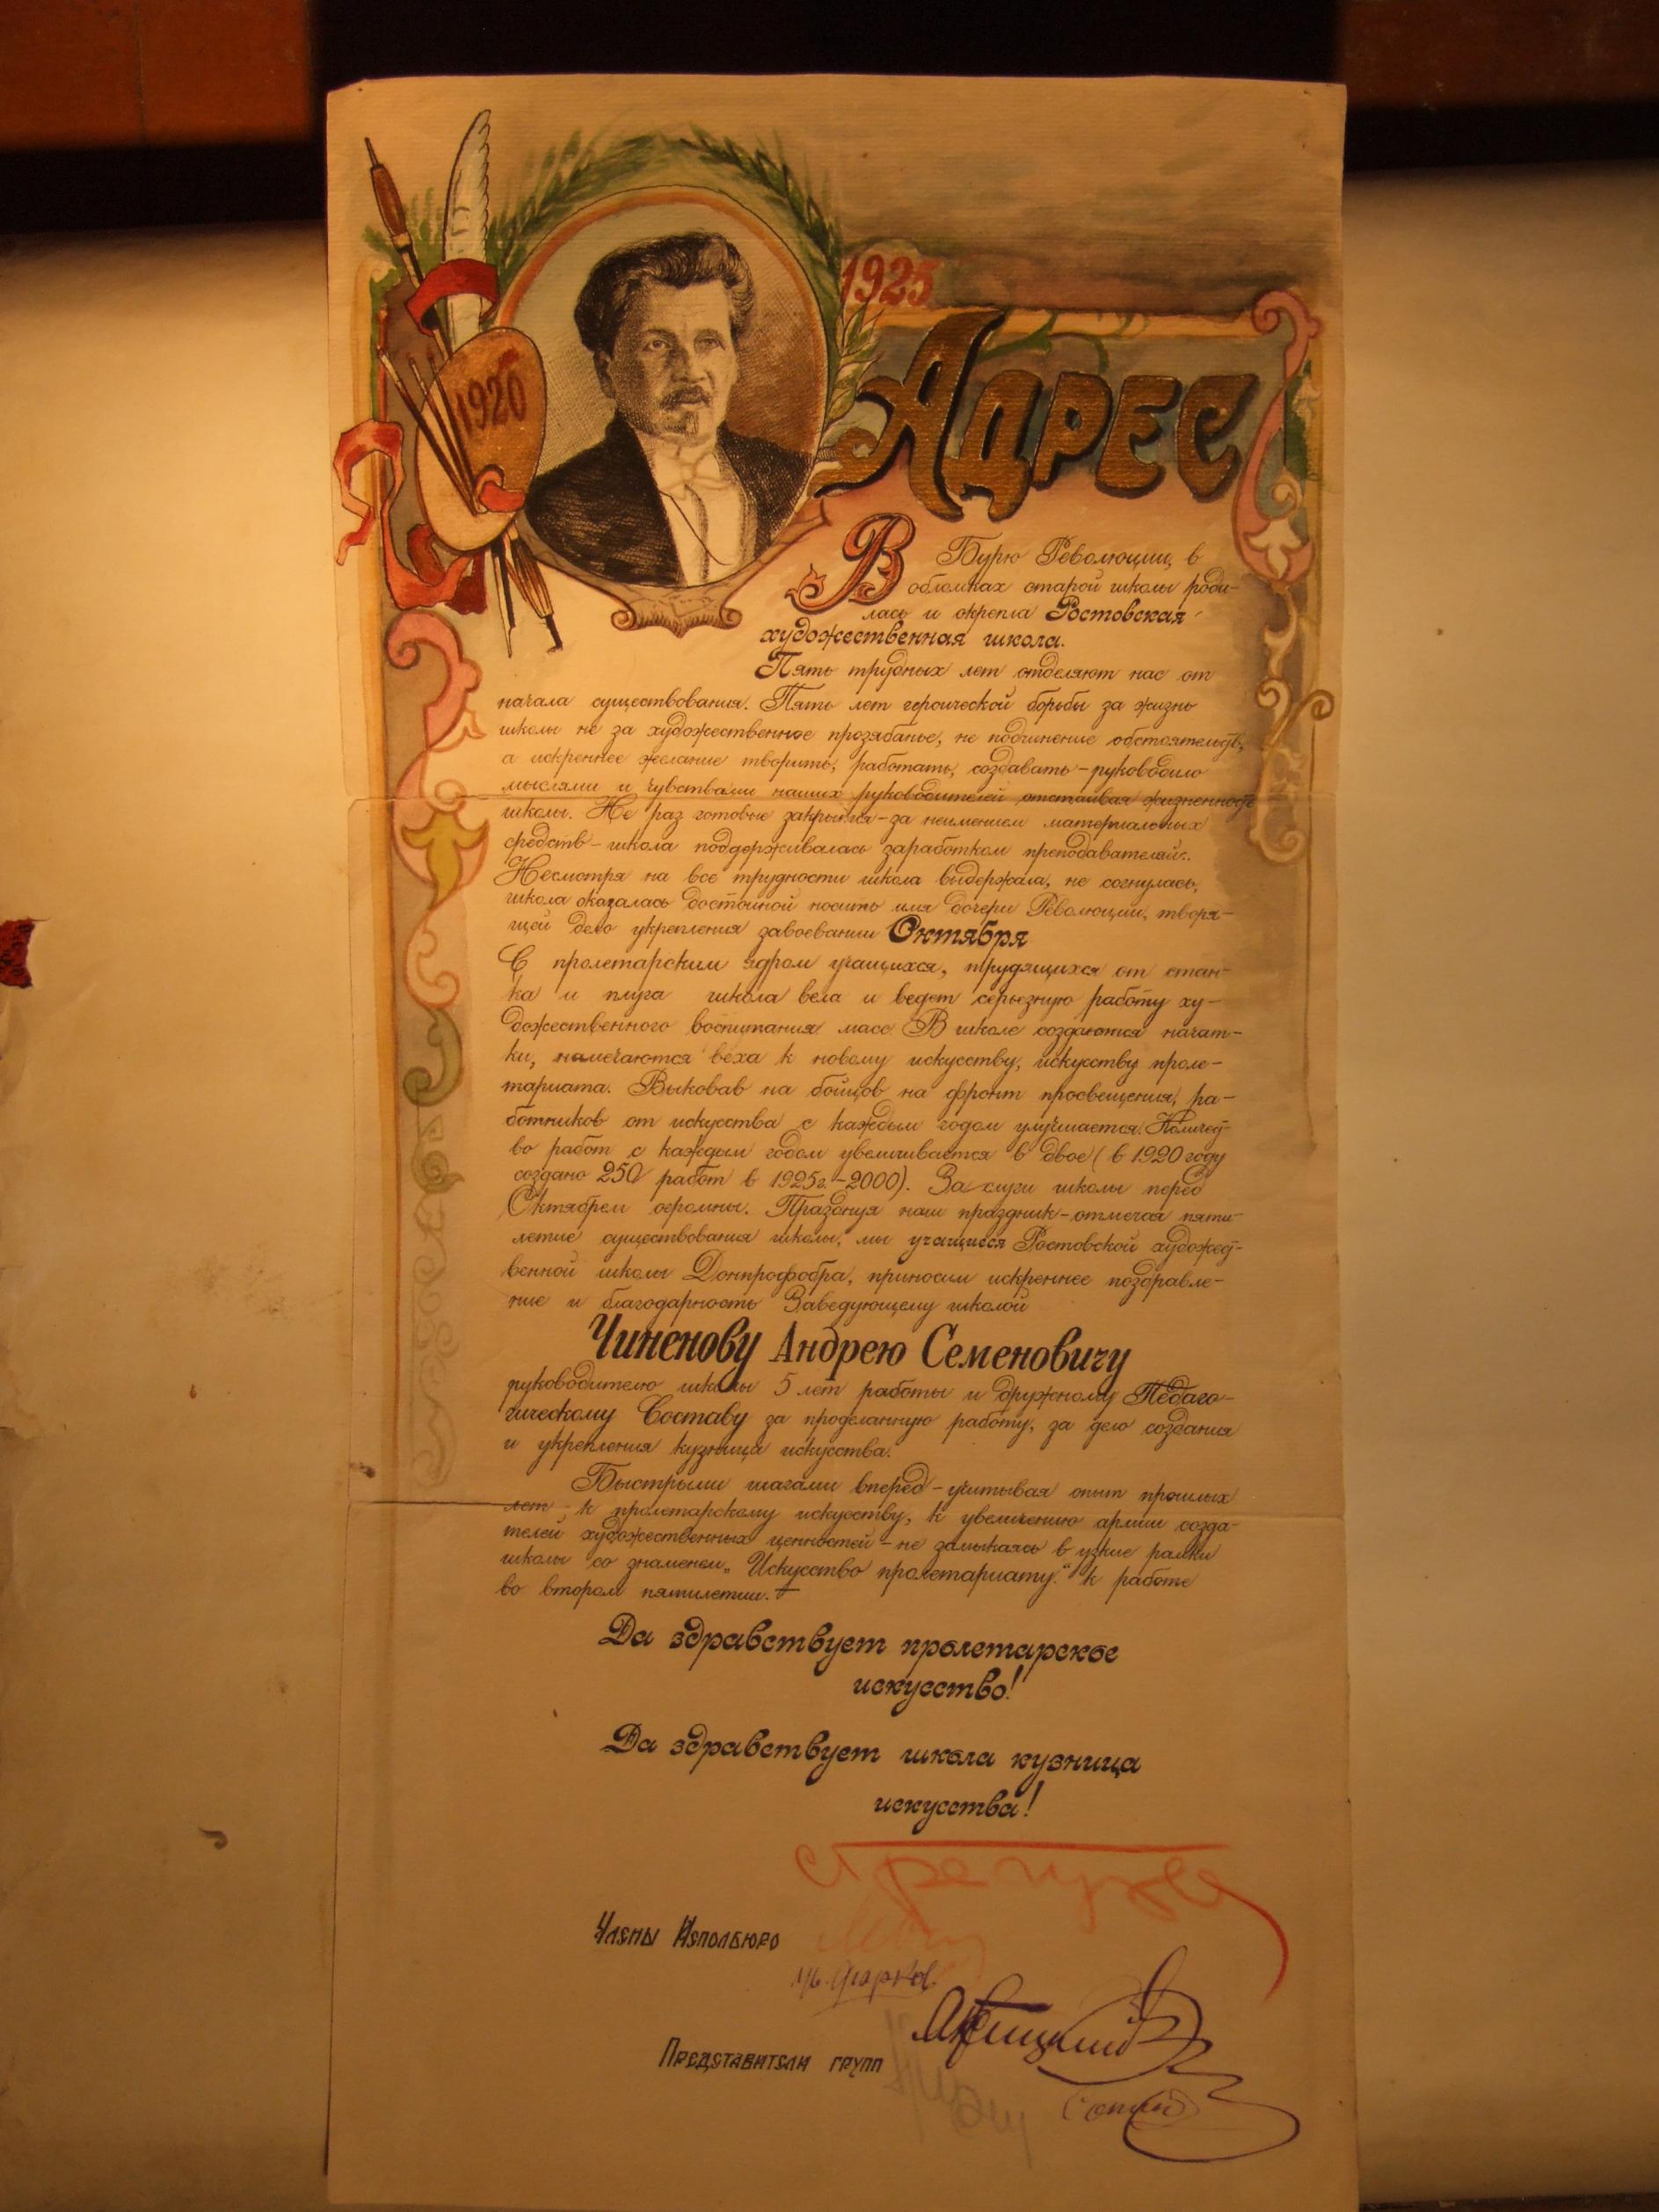 1925
1920
Адрес
В Бурю Революции, в
обломках старой школы роди-
лась и окрепла Ростовская
художественная школа.
Пять трудных лет отделяют нас от
начала существования. Пять лет героической борьбы за жизнь
школы не за художественное прозябанье, не подчинение обстоятельств,
а искреннее желание творить, работать, создавать – руководило
мыслями и чувствами наших руководителей отстаивая жизненность
школы. Не раз готовые закрыться – за неимением материальных
средств – школа поддерживалась заработком преподавателей.
Несмотря на все трудности школа выдержала, не согнулась,
школа оказалась достойной носить имя дочери Революции, творя-
щей дело укрепления завоевании Октября
С пролетарским ядром учащихся, трудящихся от стан-
ка и плуга школа вела и ведет серьезную работу ху-
дожественного воспитания масс В школе создаются начат-
ки, намечаются веха к новому искусству, искусству проле-
тариата. Выковав на бойцов на фронт просвещения, ра-
ботников от искусства с каждым годом улучшается. Количест-
во работ с каждым годом увеличивается в двое (в 1920 году
создано 250 работ в 1925г.–2000). Заслуги школы перед
Октябрем огромны. Празднуя наш праздник – отмечая пяти-
летие существования школы, мы учащиеся Ростовской художест-
венной школы Донпрофобра, приносим искреннее поздравле-
ние и благодарность Заведующему школой
Чиненову Андрею Семеновичу
руководителю школы 5 лет работы и дружному Педаго-
гическому Составу за проделанную работу, за дело создания
и укрепления кузница искусства.
Быстрыми шагами вперед – учитывая опыт прошлых
лет, к пролетарскому искусству, к увеличению армии созда-
телей художественных ценностей – не замыкаясь в узкие рамки
школы со знаменем „Искусство пролетариату." к работе
во втором пятилетии.
Да здравствует пролетарское
искусство!
Да здравствует школа кузница
искусства!
Члены Исполбюро
Представители групп